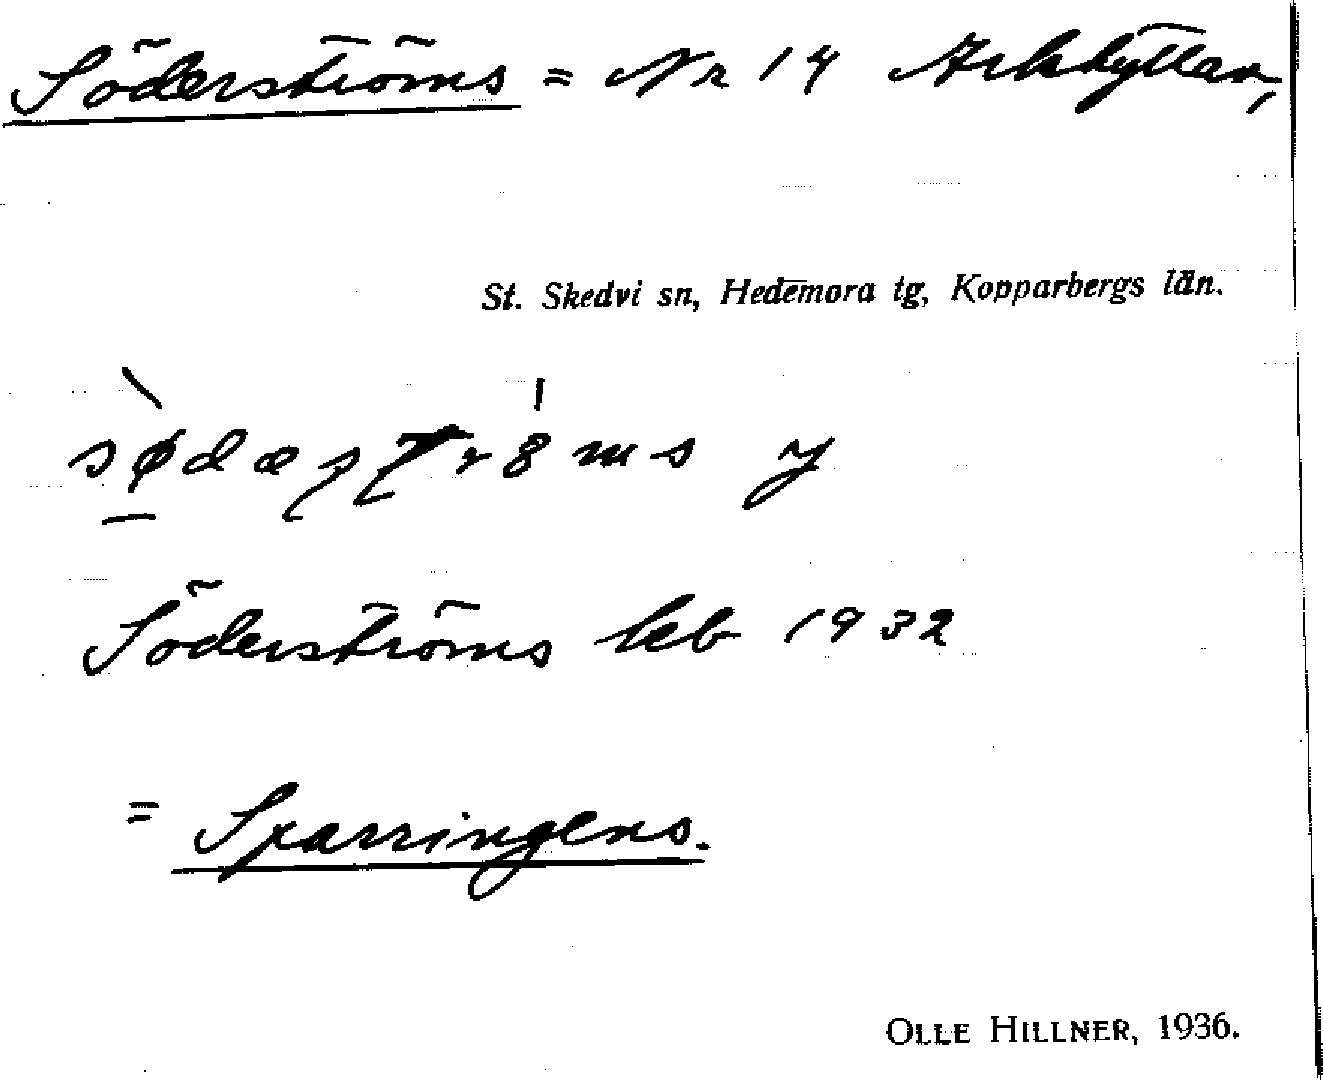 Söderströms = Nr 14 Arkhyttan,
St. Skedvi sn, Hedemora tg, Kopparbergs län.
Söderströms leb 1932
= Sparringens.
OLLE HILLNER, 1936.